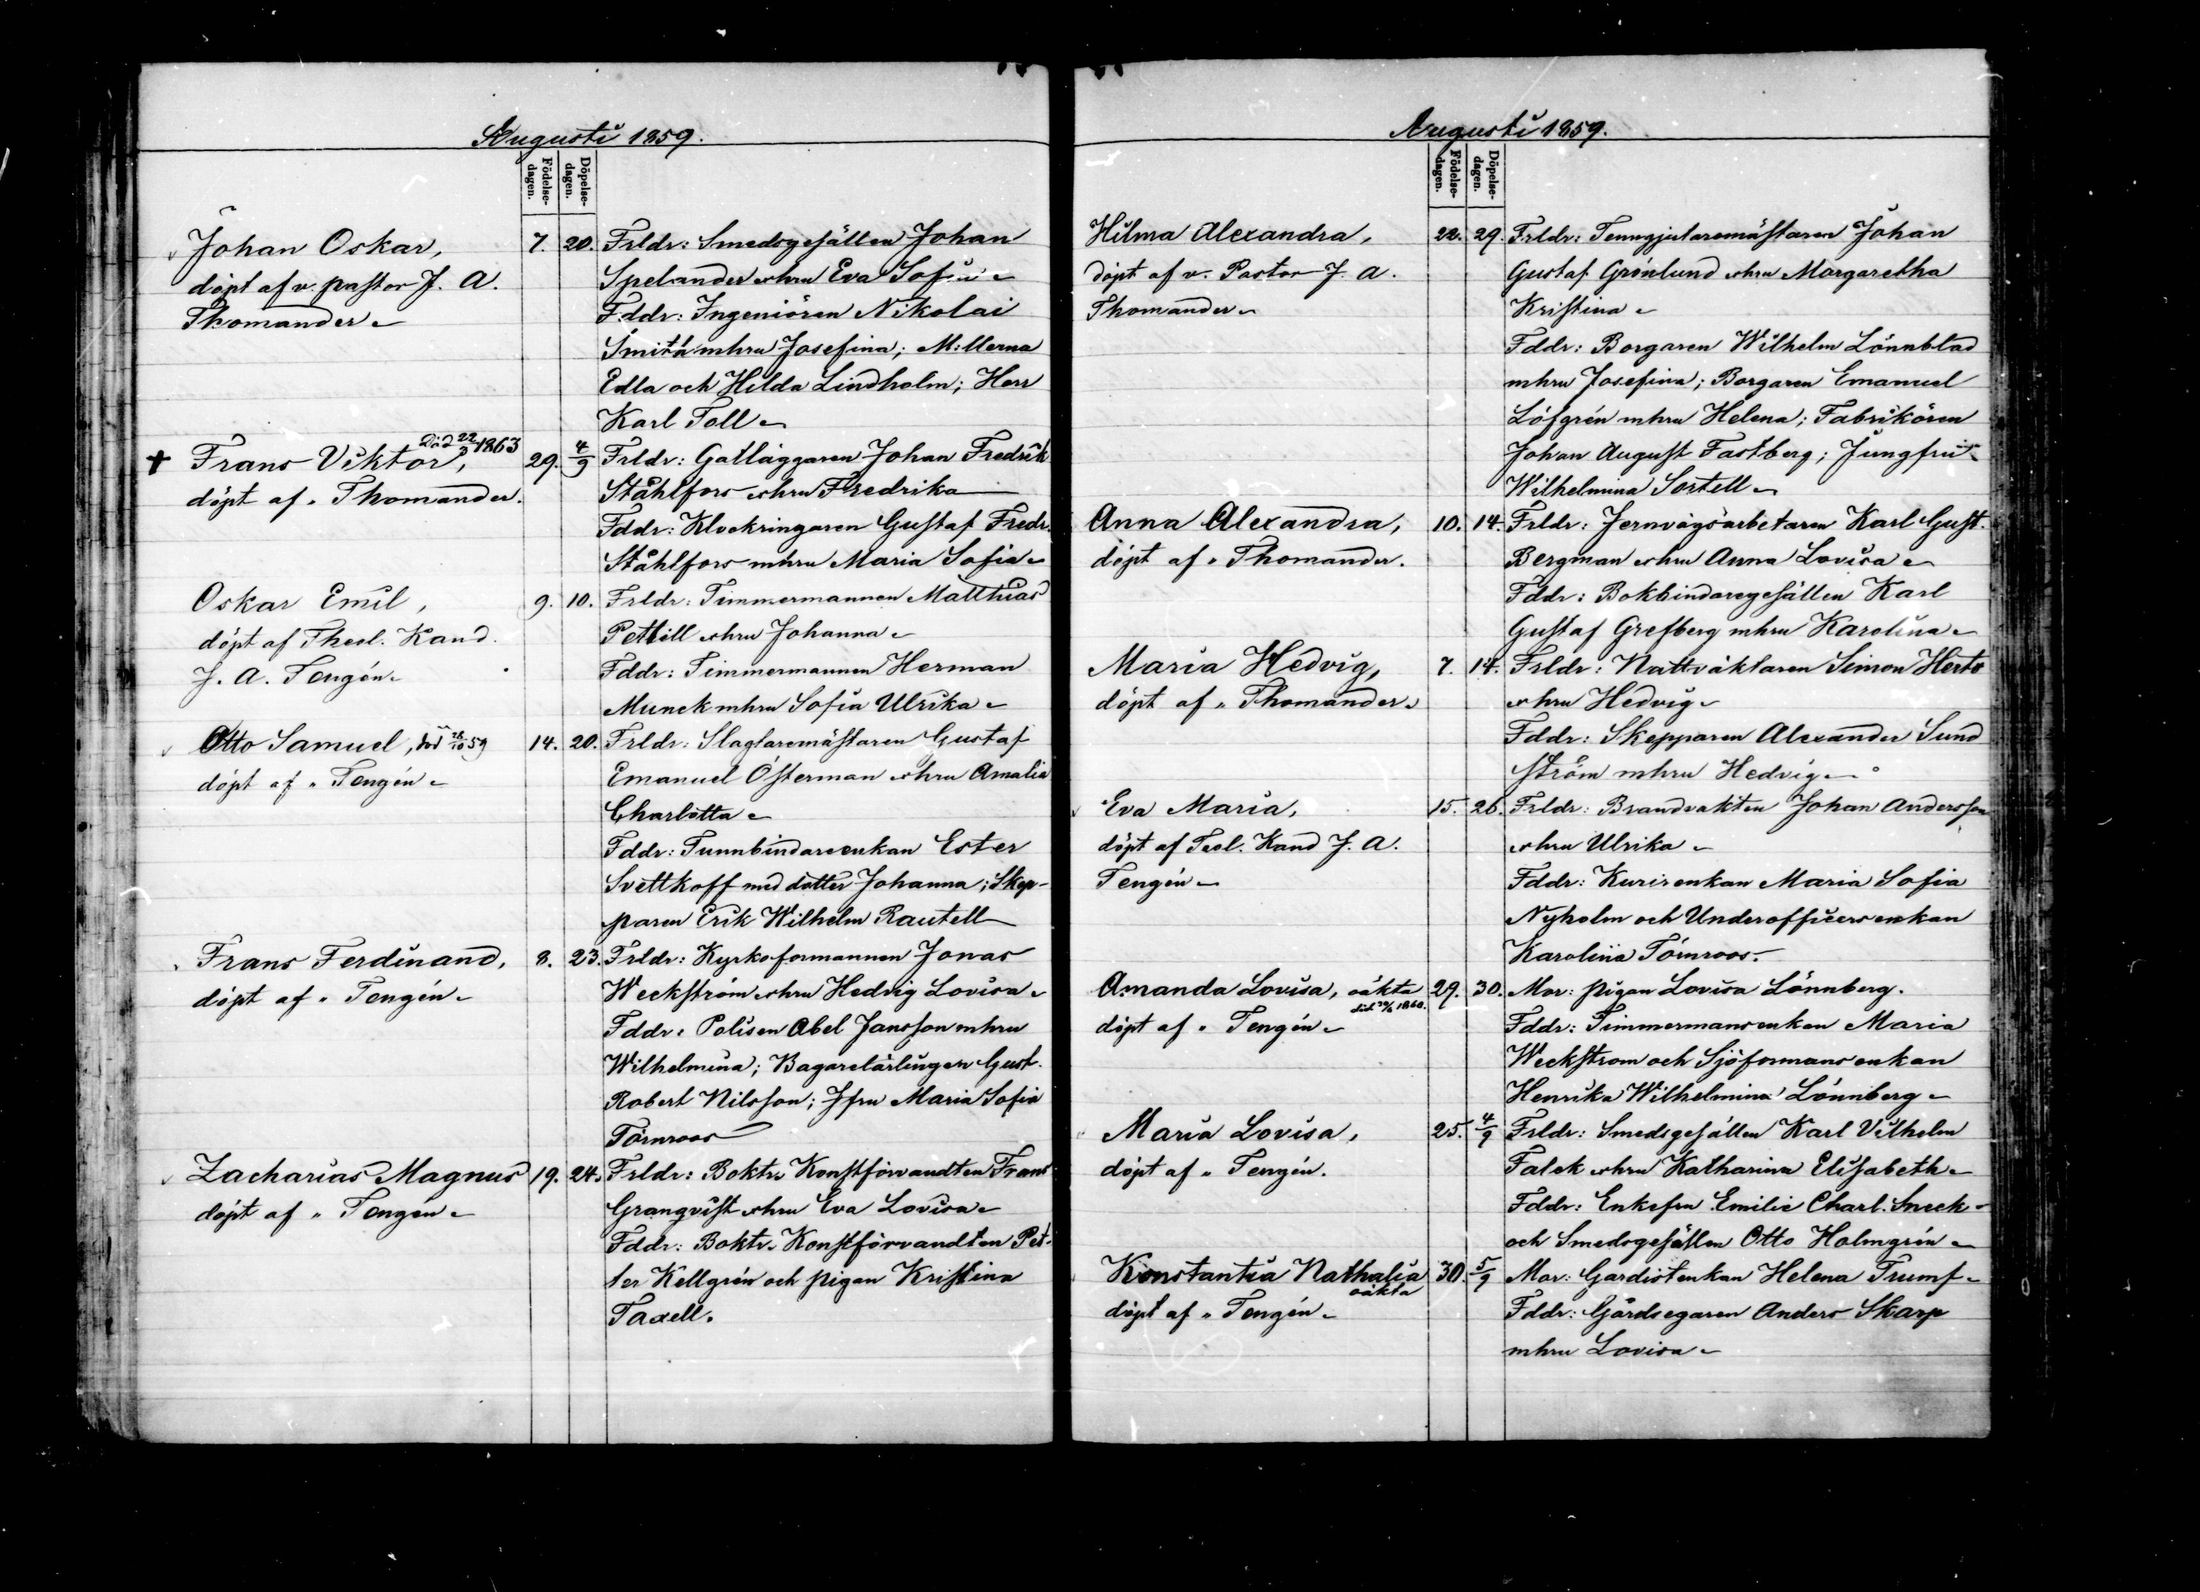 Augusti 1859.
Födelse-dagen.
Döpelse-dagen.
Johan Oskar, 7. 20. Frldr: Smedsgesällen Johan
döpt af v. pastor J. A. Spelander o hru Eva Sofia
Thomander Fddr: Ingeniören Nikolai
Smith m hru Josefina; M:llerna
Edla och Hilda Lindholm; Herr
Karl Toll
Död 22/3 1863
Frans Viktor, 29. 4/9 Frldr: Gatläggaren Johan Fredrik
döpt af " Thomander. Ståhlfors o hru Fredrika
Fddr: Klockringaren Gustaf Fredr.
Ståhlfors m hru Maria Sofia
Oskar Emil, 9. 10. Frldr: Timmermannen Matthias
döpt af Theol. Kand. Pettill o hru Johanna
J. A. Tengén Fddr: Timmermannen Herman
Munck m hru Sofia Ulrika
Otto Samuel, död 28/10 59 14. 20. Frldr: Slagtaremästaren Gustaf
döpt af " Tengén Emanuel Österman o hru Amalia
Charlotta
Fddr: Tunnbindareenkan Ester
Svettkoff med dotter Johanna; Skep-
paren Erik Wilhelm Rautell
Frans Ferdinand, 8. 23. Frldr: Kyrkoformannen Jonas
döpt af " Tengén Weckström o hru Hedvig Lovisa
Fddr: Polisen Abel Jansson m hru
Wilhelmina; Bagarelärlingen Gust.
Robert Nilsson; Jfru Maria Sofia
Törnroos
Zacharias Magnus 19. 24. Frldr: Boktr. Konstförvandten Frans
döpt af " Tengén Granqvist o hru Eva Lovisa
Fddr: Boktr. Konstförvandten Pet-
ter Kellgrén och pigan Kristina
Taxell.
Augusti 1859.
Födelse-dagen.
Döpelse-dagen.
Hilma Alexandra, 22. 29. Frldr: Tenngjutaremästaren Johan
döpt af v. Pastor J. A. Gustaf Grönlund o hru Margaretha
Thomander Kristina
Fddr: Borgaren Wilhelm Lönnblad
m hru Josefina; Borgaren Emanuel
Löfgrén m hru Helena; Fabrikören
Johan August Fastberg; Jungfru
Wilhelmina Sortell
Anna Alexandra, 10. 14. Frldr: Jernvägsarbetaren Karl Gust.
döpt af " Thomander. Bergman o hru Anna Lovisa
Fddr: Bokbindaregesällen Karl
Gustaf Grefberg m hru Karolina
Maria Hedvig, 7. 14. Frldr: Nattväktaren Simon
döpt af " Thomander o hru Hedvig
Fddr: Skepparen Alexander Sund
ström m hru Hedvig
Eva Maria, 15. 26. Frldr: Brandvakten Johan Andersson
döpt af Teol. Kand J. A. o hru Ulrika
Tengén Fddr: Kurirenkan Maria Sofia
Nyholm och Underofficersenkan
Karolina Törnroos.
Amanda Lovisa, oäkta 29. 30. Mor: pigan Lovisa Lönnberg.
död 1860.
döpt af " Tengén Fddr: Timmermansenkan Maria
Weckstrom och Sjöformansenkan
Henrika Wilhelmina Lönnberg
Maria Lovisa, 25. 4/9 Frldr: Smedsgesällen Karl Vilhelm
döpt af " Tengén. Falck o hru Katharina Elisabeth
Fddr: Enkefru Emilie Charl. Sneck
och Smedsgesällen Otto Holmgrén
Konstantia Nathalia 30. 5/9 Mor: Gardistenkan Helena Trumf
oäkta
döpt af " Tengén Fddr: Gårdsegaren Anders Skarp
m hru Lovisa